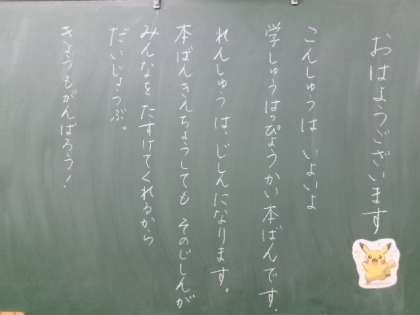 おはようございます
こんしゅうは いよいよ
学しゅうはっぴょうかい本ばんです。
れんしゅうは、じしんになります。
本ばんきんちょうしても そのじしんが
みんなを たすけてくれるから
だいじょうぶ。
きょうもがんばろう!